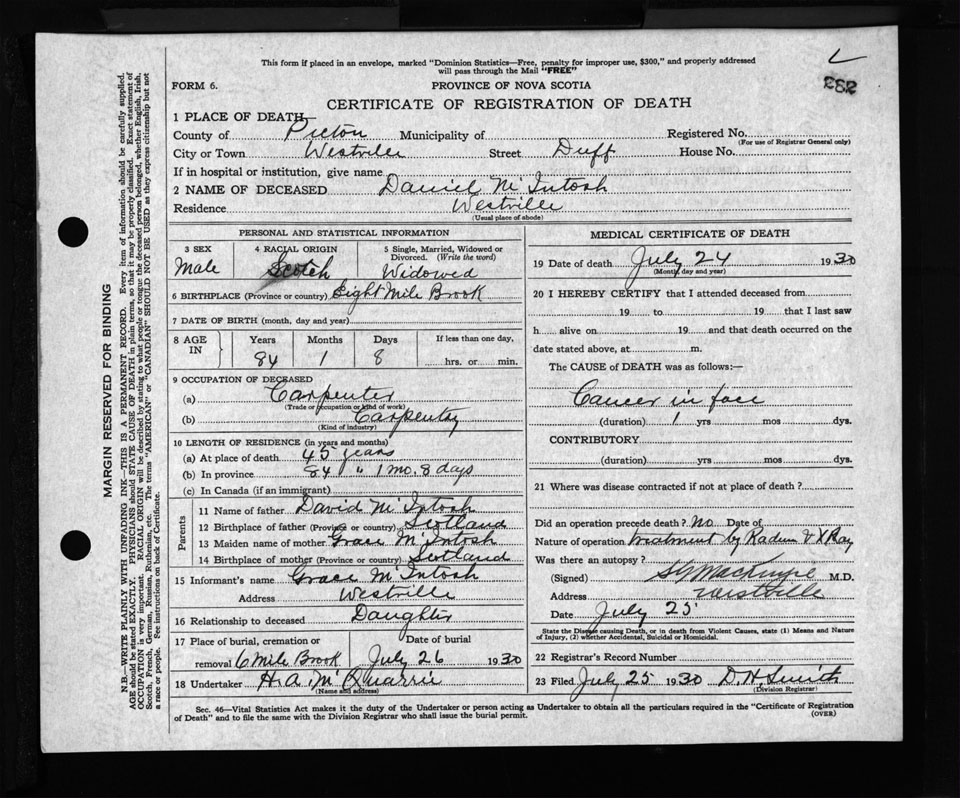 This form if placed in an envelope, marked "Dominion Statistics—Free, penalty for improper use, $300," and properly addressed
will pass through the Mail "FREE"
FORM 6.
PROVINCE OF NOVA SCOTIA
CERTIFICATE OF REGISTRATION OF DEATH
1 PLACE OF DEATH—
County of Pictou Municipality of Registered No.
(For use of Registrar General only)
City or Town Westville Street Duff House No.
If in hospital or institution, give name
2 NAME OF DECEASED Daniel McIntosh
Residence Westville
(Usual place of abode)
PERSONAL AND STATISTICAL INFORMATION
3 SEX 4 RACIAL ORIGIN 5 Single, Married, Widowed or
Divorced. (Write the word)
Male Scotch Widowed
6 BIRTHPLACE (Province or country) Eight Mile Brook
7 DATE OF BIRTH (month, day and year)
8 AGE IN Years Months Days If less than one day,
84 1 8 hrs. or min.
9 OCCUPATION OF DECEASED
(a) Carpenter
(Trade or occupation or kind of work)
(b) Carpentry
(Kind of industry)
10 LENGTH OF RESIDENCE (in years and months)
(a) At place of death 45 years
(b) In province 84 " 1 mo. 8 days
(c) In Canada (if an immigrant)
Parents
11 Name of father David McIntosh
12 Birthplace of father (Province or country) Scotland
13 Maiden name of mother Grace McIntosh
14 Birthplace of mother (Province or country) Scotland
15 Informant's name Grace McIntosh
Address Westville
16 Relationship to deceased Daughter
17 Place of burial, cremation or Date of burial
removal 6 Mile Brook July 26 1930
18 Undertaker H. A. McQuarrie
(Name and address)
MEDICAL CERTIFICATE OF DEATH
19 Date of death July 24 1930
(Month, day and year)
20 I HEREBY CERTIFY that I attended deceased from
19 to 19 that I last saw
h alive on 19 and that death occurred on the
date stated above, at m.
The CAUSE of DEATH was as follows:—
Cancer in face
(duration) 1 yrs mos dys.
CONTRIBUTORY
(duration) yrs mos dys.
21 Where was disease contracted if not at place of death?
Did an operation precede death? No Date of
Nature of operation treatment by Radium & X Ray
Was there an autopsy?
(Signed) MacKenzie M.D.
Address Westville
Date July 25
State the Disease causing Death, or in death from Violent Causes, state (1) Means and Nature
of Injury, (2) whether Accidental, Suicidal or Homicidal.
22 Registrar's Record Number
23 Filed July 25 1930 D. H. Smith
(Division Registrar)
Sec. 46—Vital Statistics Act makes it the duty of the Undertaker or person acting as Undertaker to obtain all the particulars required in the "Certificate of Registration
of Death" and to file the same with the Division Registrar who shall issue the burial permit.
(OVER)
MARGIN RESERVED FOR BINDING
N.B.—WRITE PLAINLY WITH UNFADING INK—THIS IS A PERMANENT RECORD. Every item of information should be carefully supplied.
AGE should be stated EXACTLY. PHYSICIANS should STATE CAUSE OF DEATH in plain terms, so that it may be properly classified. Exact statement of
OCCUPATION is very important. RACIAL ORIGIN will be described by stating to what people or tongue the deceased person belonged, whether English, Irish,
Scotch, French, German, Russian, Ruthenian, etc. The terms "AMERICAN" or "CANADIAN" SHOULD NOT BE USED as they express citizenship but not
a race or people. See instructions on back of Certificate.